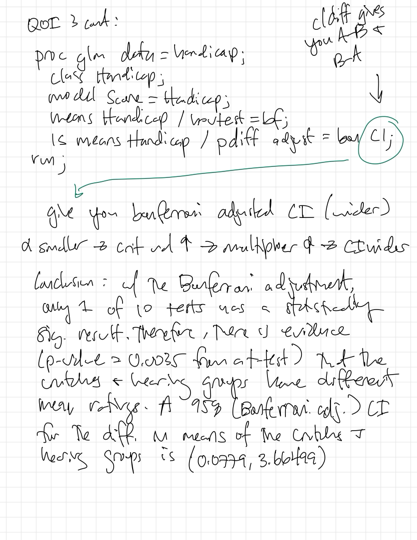 QOI 3 cont:
cldiff gives
you A-B &
B-A
proc glm data = handicap;
class Handicap;
model Score = Handicap;
means Handicap / hovtest = bf;
ls means Handicap / pdiff adjust = bon CI;
run;
give you bonferroni adjusted CI (wider)
α smaller → crit val ↑ → multiplier ↑ → CI wider
Conclusion: w/ the Bonferroni adjustment,
only 1 of 10 tests has a statistically
sig. result. Therefore, there is evidence
(p-value = 0.0035 from a t-test) that the
crutches & hearing groups have different
mean ratings. A 95% (Bonferroni adj.) CI
for the diff. in means of the crutches &
hearing groups is (0.0779, 3.66499)